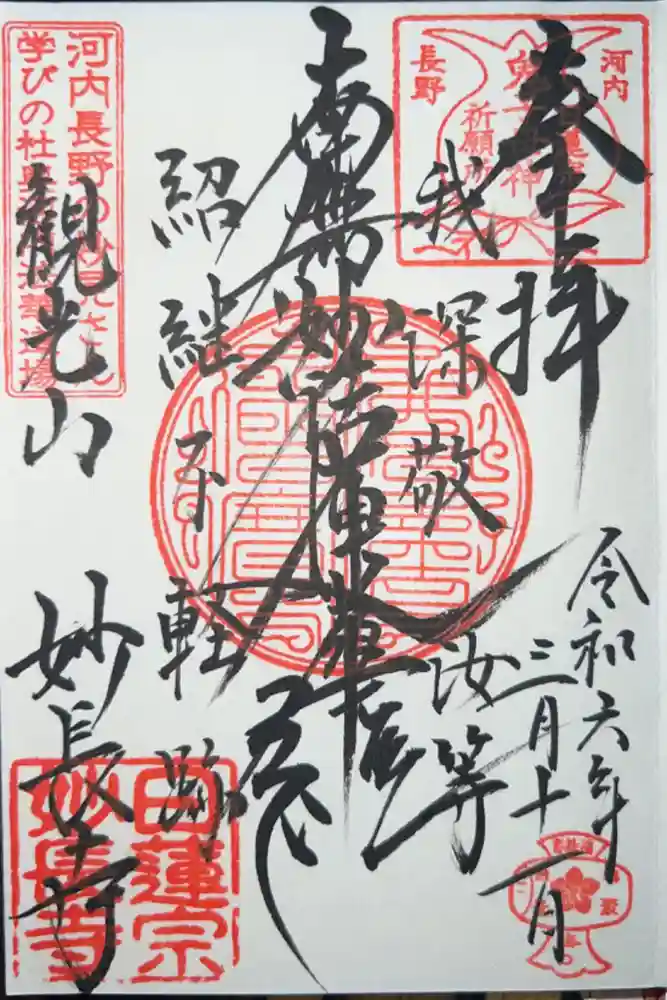 奉拝
令和六年
三月十一日
我深敬汝等
南無妙法蓮華経
紹継不軽跡
観光山
妙長寺
河内
長野
鬼子母神
日蓮宗
祈願所
河内長野の妙見さん
学びの杜
道場
日蓮宗
妙長寺